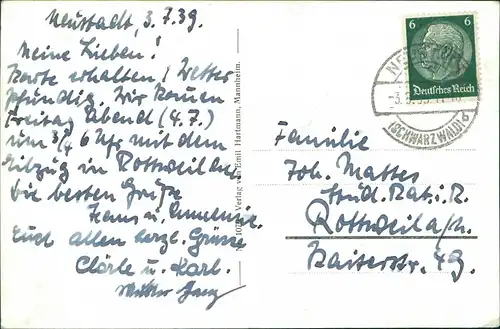 Neustadt, 3.7.39.
Meine Lieben!
Karte erhalten! Wetter
pfundig. Wir kommen
Freitag Abend (4.7.)
um 3/4 6 Uhr mit dem
Eilzug in Rottweil an.
Die besten Grüße
Hans u. Annemie.
Euch allen herzl. Grüsse
Clärle u. Karl.
Verlag von Emil Hartmann, Mannheim.
6 6
Deutsches Reich
(SCHWARZWALD)
Familie
Joh. Mattes
Stud. Rat. i. R.
Rottweil a/N.
Kaiserstr. 49.